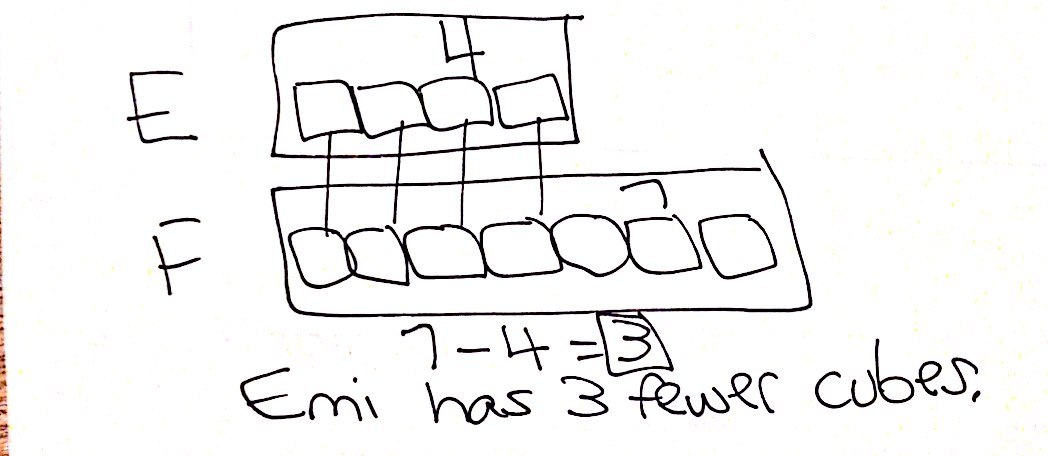 4
E
7
F
7-4=3
Emi has 3 fewer cubes.